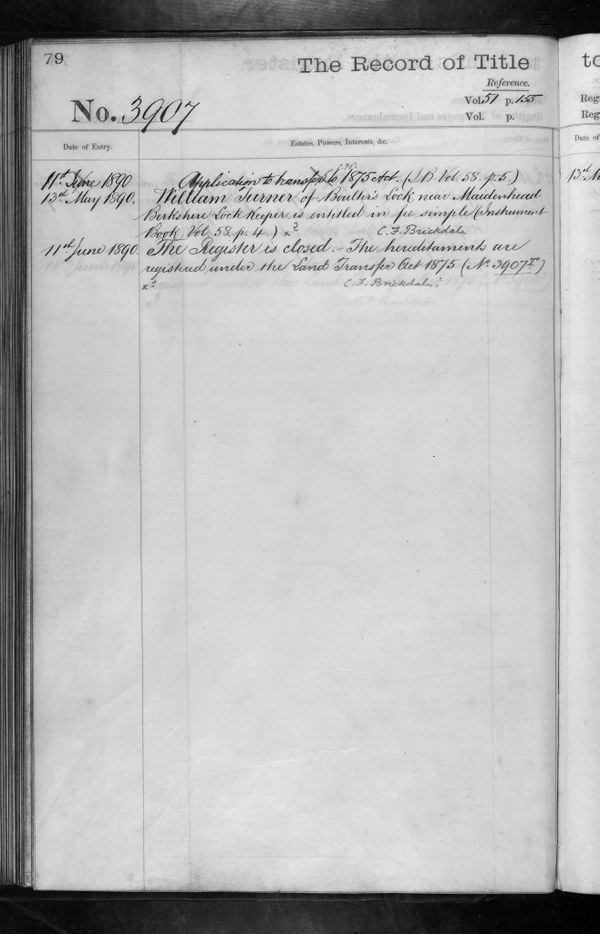 79
The Record of Title
Reference.
No. 3907
Vol. 51 p. 155
Vol. p.
Date of Entry.
Estates, Powers, Interests, &c.
11th June 1890 Application to transfer to 1875 Act. (I.B. Vol. 58. p. 5)
13th May 1890. William Turner of Boulter's Lock near Maidenhead
Berkshire Lock Keeper is entitled in fee simple (Instrument
Book Vol. 58. p. 4.) x2 C. F. Brickdale
11th June 1890. The Register is closed. The hereditaments are
registered under the Land Transfer Act 1875 (No. 3907)
x2 C. F. Brickdale.
to
Reg
Reg
Date of
13th M